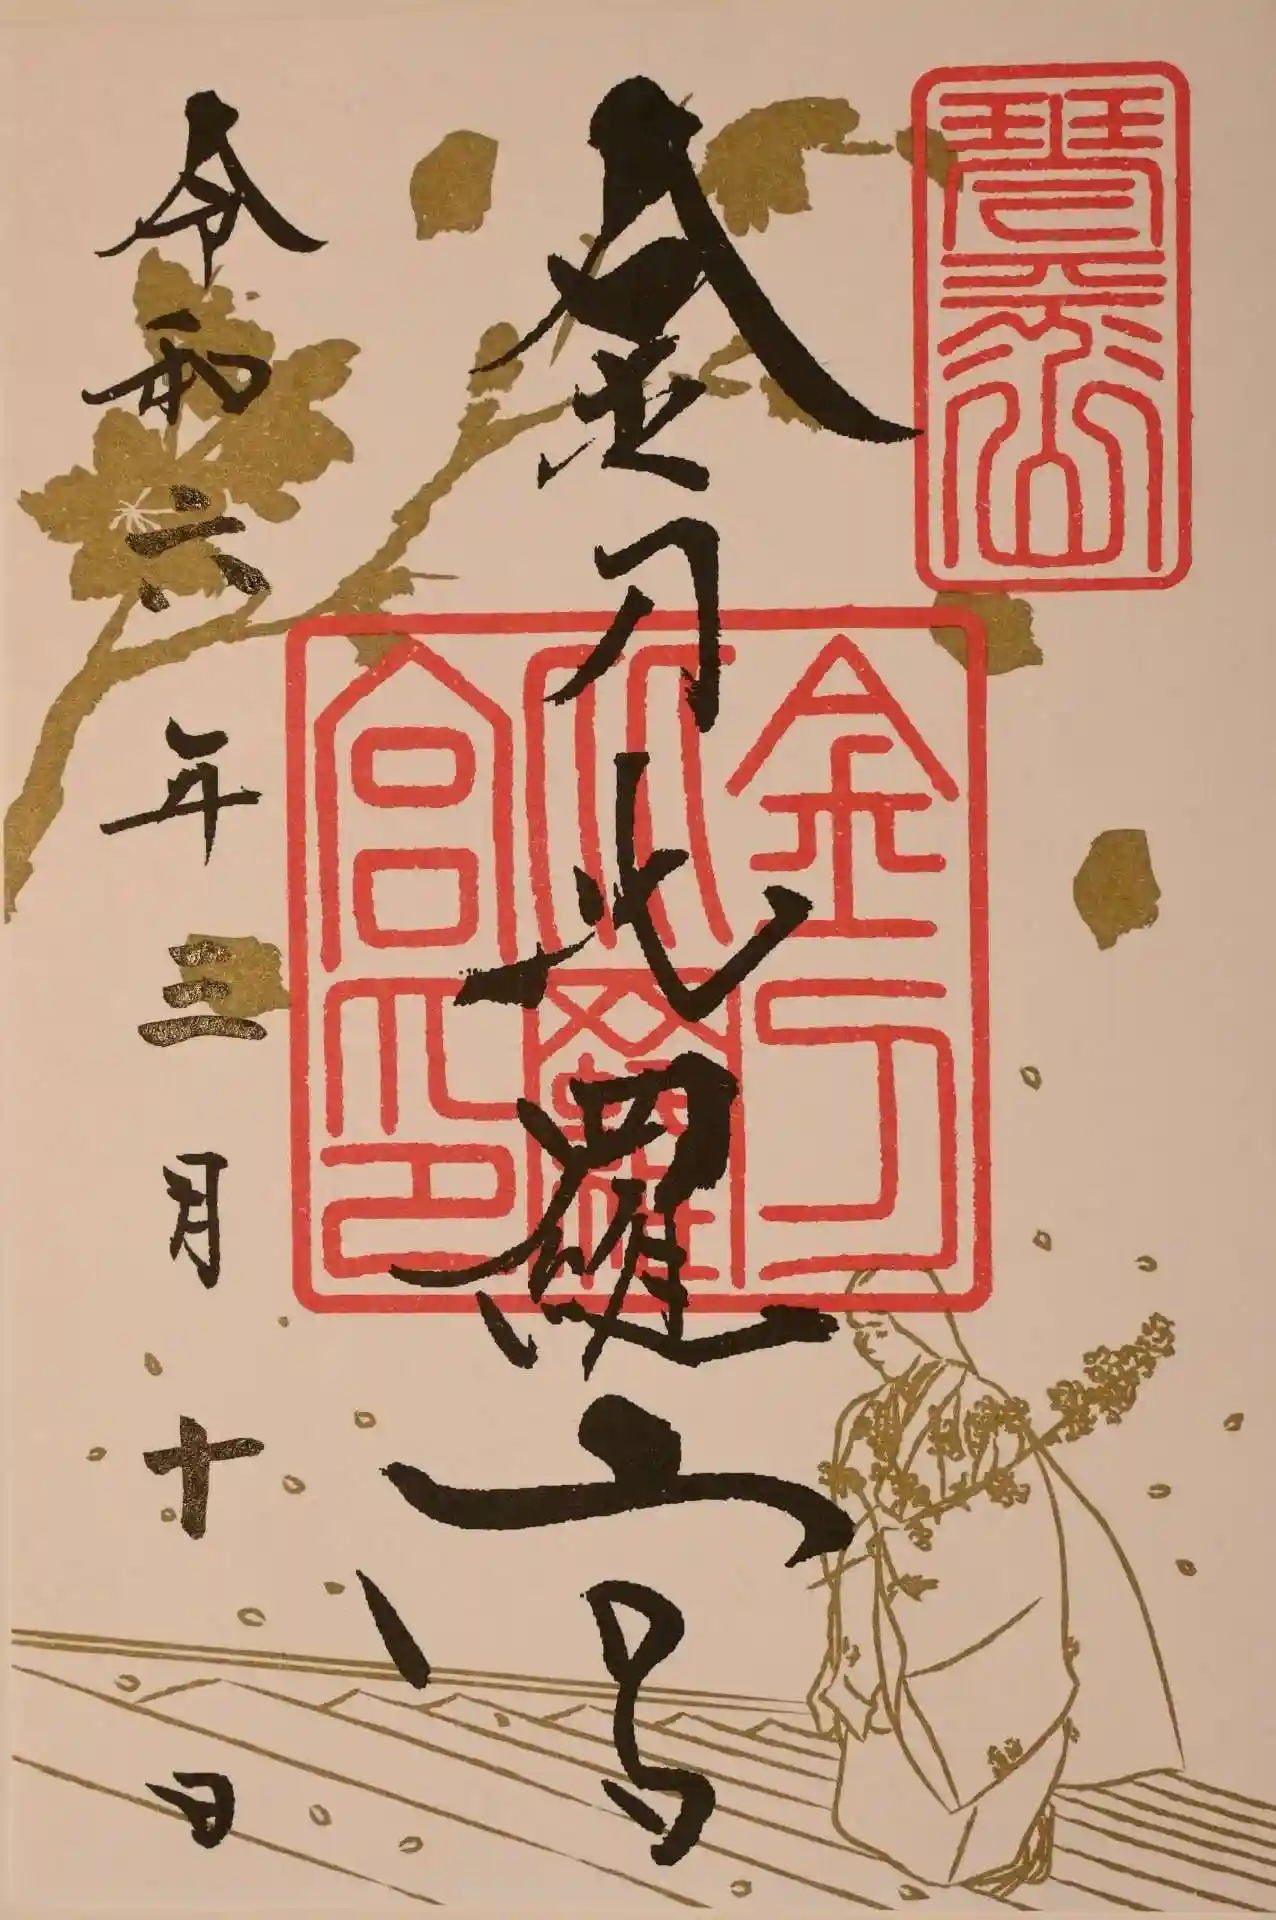 琴平山
金刀比羅宮
金刀比羅宮印
令和六年三月十日